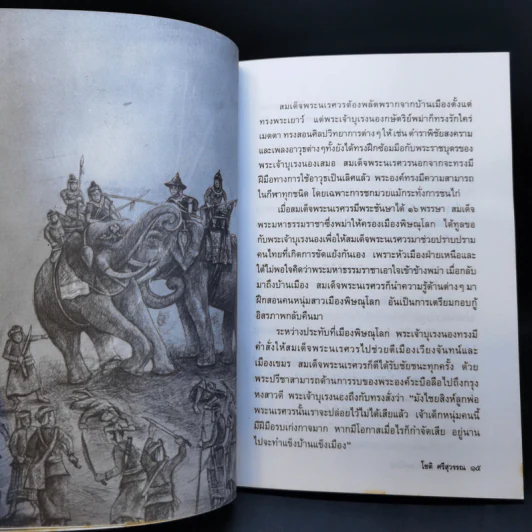 สมเด็จพระนเรศวรต้องพลัดพรากจากบ้านเมืองตั้งแต่
ทรงพระเยาว์ แต่พระเจ้าบุเรงนองกษัตริย์พม่าก็ทรงรักใคร่
เมตตา ทรงสอนศิลปวิทยาการต่างๆ ให้ เช่น ตำราพิชัยสงคราม
และเพลงอาวุธต่างๆทั้งยังได้ทรงฝึกซ้อมมือกับพระราชบุตรของ
พระเจ้าบุเรงนองเสมอ สมเด็จพระนเรศวรนอกจากจะทรงมี
ฝีมือทางการใช้อาวุธเป็นเลิศแล้ว พระองค์ทรงมีความสามารถ
ในกีฬาทุกชนิด โดยเฉพาะการชกมวยแม้กระทั่งการชนไก่
เมื่อสมเด็จพระนเรศวรมีพระชันษาได้ ๑๖ พรรษา สมเด็จ
พระมหาธรรมราชาซึ่งพม่าให้ครองเมืองพิษณุโลก ได้ทูลขอ
กับพระเจ้าบุเรงนองเพื่อให้สมเด็จพระนเรศวรมาช่วยปราบปราม
คนไทยที่เกิดการขัดแย้งกันเอง เพราะหัวเมืองฝ่ายเหนือและ
ใต้ไม่พอใจคิดว่าพระมหาธรรมราชาเอาใจเข้าข้างพม่า เมื่อกลับ
มาถึงบ้านเมือง สมเด็จพระนเรศวรก็นำความรู้ด้านต่างๆ มา
ฝึกสอนคนหนุ่มสาวเมืองพิษณุโลก อันเป็นการเตรียมกอบกู้
อิสรภาพกลับคืนมา
ระหว่างประทับที่เมืองพิษณุโลก พระเจ้าบุเรงนองทรงมี
คำสั่งให้สมเด็จพระนเรศวรไปช่วยตีเมืองเวียงจันทน์และ
เมืองเขมร สมเด็จพระนเรศวรก็ตีได้รับชัยชนะทุกครั้ง ด้วย
พระปรีชาสามารถด้านการรบของพระองค์ระบือลือไปถึงกรุง
หงสาวดี พระเจ้าบุเรงนองถึงกับทรงสั่งว่า "มังไชยสิงห์ลูกพ่อ
พระนเรศวรนั้นเราจะปล่อยไว้ไม่ได้เสียแล้ว เจ้าเด็กหนุ่มคนนี้
มีฝีมือรบเก่งกาจมาก หากมีโอกาสเมื่อไรก็กำจัดเสีย อยู่นาน
ไปจะทำแข็งบ้านแข็งเมือง"
โชติ ศรีสุวรรณ ๑๕